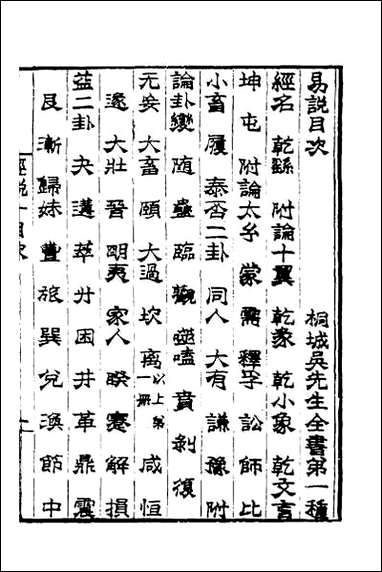 易說目次
桐城吳先生全書第一種
經名 乾繇 附論十翼 乾彖 乾小象 乾文言
坤 屯 附論太𠂹 蒙 需 釋孚 訟 師 比
小畜 履 泰否二卦 同人 大有 謙 豫 附
論卦變 隨 蠱 臨 觀 噬嗑 賁 剝 復
无妄 大畜 頤 大過 坎 離 以上第一冊 咸 恒
遯 大壯 晉 明夷 家人 睽 蹇 解 損
益二卦 夬 遘 萃 升 困 井 革 鼎 震
艮 漸 歸妹 豐 旅 巽 兌 渙 節 中
經說一目次